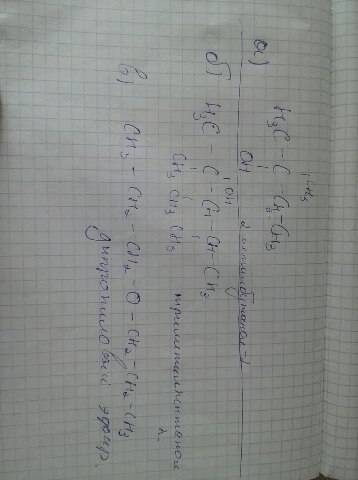 а)
CH₃
H₃C – C – CH₂ – CH₃
OH
2 метилбутанол-2
б)
OH
H₃C – C – CH – CH – CH₃
CH₃ CH₃ CH₃
триметилпентанол
2.
в) CH₃ – CH₂ – CH₂ – O – CH₂ – CH₂ – CH₃
дипропиловый эфир.